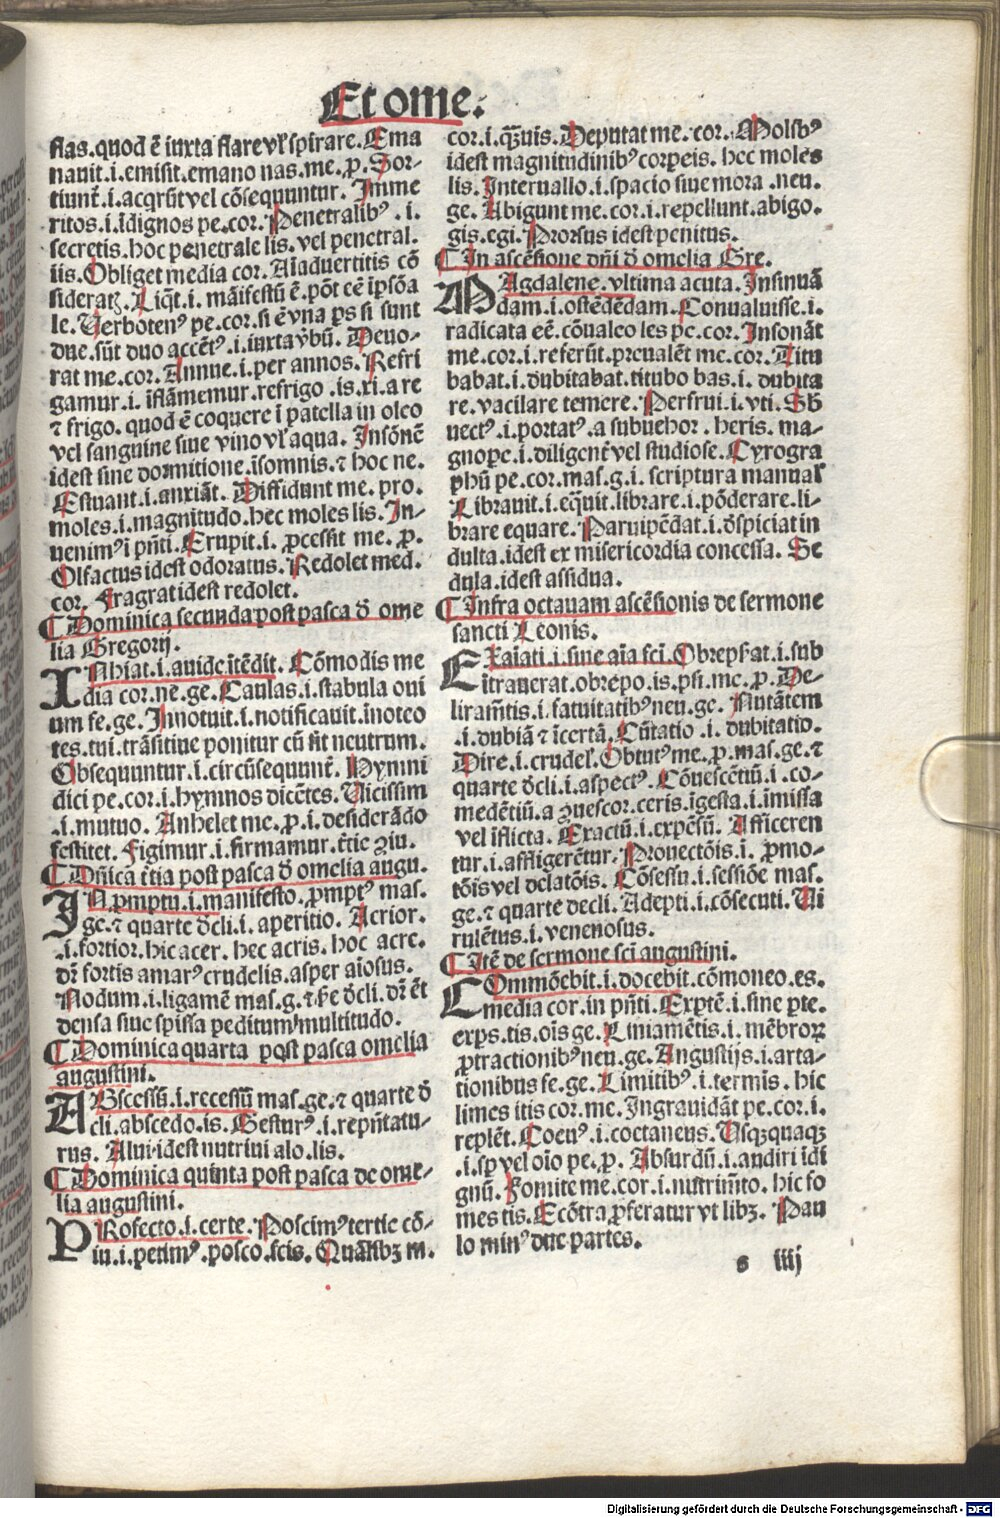 Et ome.
flas.quod ē iuxta flare vl' spirare. Ema
nauit.i.emisit.emano nas.me.p. Sor-
tiunt̄.i.acqrūt vel cōsequuntur. Imme
ritos.i.īdignos pe.cor. Penetralibꝰ .i.
secretis.hoc penetrale lis. vel penetral.
iis. Obliget media cor. Aīaduertitis cō
sideratꝭ. Liq̄t.i. māifestū ē. pōt eē ipsōa
le. Verbotenꝰ pe.cor.si ē vna ps si sunt
due.sūt duo accētꝰ.i.iuxta ỹbū. Deuo-
rat me.cor. Annue.i.per annos. Refri
gamur.i. iflāmemur.refrigo .is.xi.a re
⁊ frigo. quod ē coquere ī patella in oleo
vel sanguine siue vino vl' aqua. Insōnē
idest sine dormitione.īsomnis.⁊ hoc ne.
Estuant.i.anxiāt. Diffidunt me. pro.
moles.i.magnitudo.hec moles lis. In-
uenimꝰ ī pn̄ti. Erupit.i. ꝓcessit me. p.
Olfactus idest odoratus. Redolet med.
cor. Fragrat idest redolet.
¶ Dominica secunda post pasca d̄ ome
lia Gregorij.
INhiat.i.auide ītēdit. Cōmodis me
dia cor.ne.ge. Caulas.i.stabula oui
um fe.ge. Innotuit.i.notificauit.īnoteo
tes.tui.trāsitiue ponitur cū sit neutrum.
Obsequuntur.i.circūsequunt̄. Hymni
dici pe.cor.i.hymnos dicētes. Vicissim
.i.mutuo. Anhelet me. p.i.desiderādo
festitet. Figimur.i.firmamur.t̄tie ꝯiu.
¶ Dn̄ica t̄tia post pasca d̄ omelia augu.
IN ꝓmptu.i.manifesto. ꝓmptꝰ mas.
ge.⁊ quarte d̄cli.i.aperitio. Acrior.
.i.fortior.hic acer. hec acris. hoc acre.
dr̄ fortis amarꝰ crudelis.asper aīosus.
Nodum.i.ligamē mas.g.⁊ sc̄de d̄cli. dr̄ ēt
densa siue spissa peditum multitudo.
¶ Dominica quarta post pasca omelia
augustini.
ABscessū.i.recessū mas.ge.⁊ quarte d̄
cli.abscedo.is. Gesturꝰ.i.repn̄tatu-
rus. Alui.idest nutriui alo.lis.
¶ Dominica quinta post pasca de ome-
lia augustini.
PRofecto.i.certe. Poscimꝰ tertie cō-
iu.i.petimꝰ.posco.scis. Quālibꝫ m.
cor.i.q̄uis. Deputat me.cor. Molibꝰ
idest magnitudinibꝰ corpeis. hec moles
lis. Interuallo.i.spacio siue mora .neu.
ge. Abigunt me.cor.i.repellunt.abigo.
gis.egi. Prorsus idest penitus.
¶ In ascēsione dn̄i d̄ omelia Gre.
MAgdalene. vltima acuta. Insinuā
dam.i.ostēdēdam. Conualuisse.i.
radicata eē.cōualeo les pe.cor. Insonāt
me.cor.i.referūt.preualēt me.cor. Titu
babat.i.dubitabat.titubo bas.i. dubita
re.vacilare temere. Perfrui.i.vti. Sb̄
uectꝰ.i.portatꝰ.a subuehor .heris. ma-
gnope.i.diligent̄ vel studiose. Cyrogra
phū pe.cor.mas.g.i. scriptura manual'
Librauit.i.eq̄uit.librare.i.pōderare.li-
brare equare. Paruipēdat.i.d̄spiciat in
dulta.idest ex misericordia concessa. Se
dula.idest assidua.
¶ Infra octauam ascēsionis de sermone
sancti Leonis.
EXaīati.i.sine aīa sci. Obrepsat.i.sub
ītrauerat.obrepo.is.psi.me. p. De-
liramētis.i.fatuitatibꝰ neu.ge. Nutātem
.i.dubiā ⁊ īcertā. Cūtatio .i. dubitatio.
Dire.i.crudel'. Obtutꝰ me. p.mas.ge.⁊
quarte d̄cli.i.aspectꝰ. Cōuescētiū.i.co-
medētiū.a ꝯuescor.ceris.īgesta.i.īmissa
vel īflicta. Exactū.i.expēsū. Afficeren
tur.i.affligerētur. Prouectōis.i. ꝓmo-
tōis vel delatōis. Cōsessu.i.sessiōe mas.
ge.⁊ quarte decli. Adepti.i.cōsecuti. Vi
rulētus.i.venenosus.
¶ Itē de sermone sc̄i augustini.
COmmōebit.i.docebit.cōmoneo.es.
media cor.in pn̄ti. Expte̅.i.sine pte.
exps.tis.oīs ge. Liniamētis.i. mēbroꝝ
ꝓtractionibꝰ neu.ge. Angustijs.i.arta-
tionibus fe.ge. Limitibꝰ.i.termīs. hic
limes itis cor.me. Ingrauidāt pe.cor.i.
replēt. Coeuꝰ.i.coetaneus. Vsqꝫquaqꝫ
.i.sp̄ vel oīo pe. p. Absurdū.i.audiri īdi
gnū. Fomite me.cor.i.nutrimēto. hic fo
mes tis. Ecōtra ꝓferatur vt libꝫ. Pau
lo minꝰ due partes.
s iiij
Digitalisierung gefördert durch die Deutsche Forschungsgemeinschaft - DFG